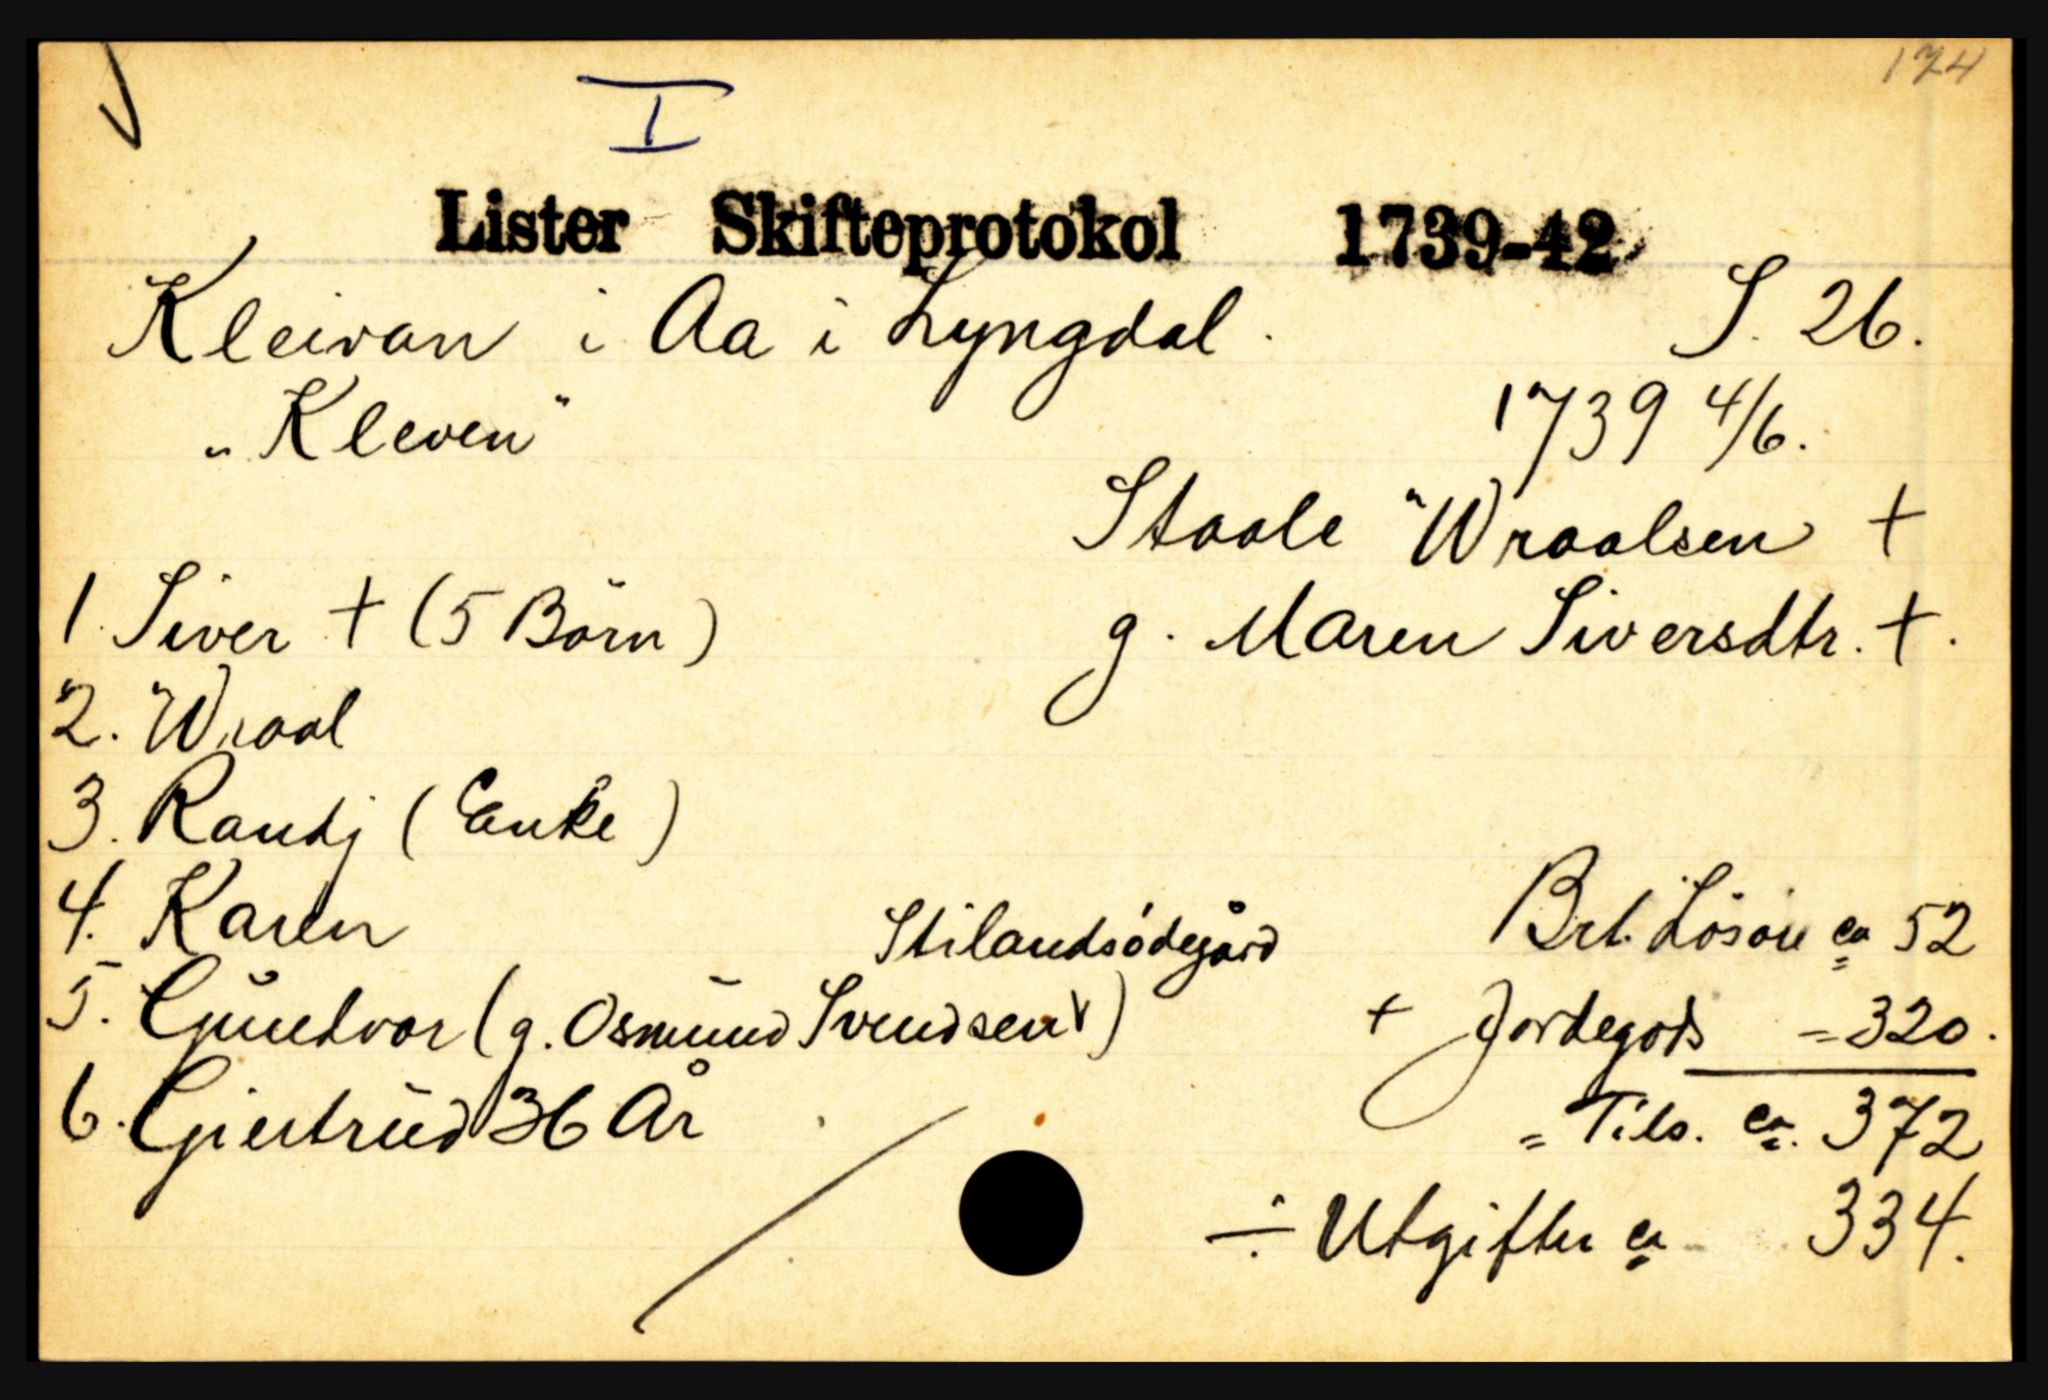 174
I
Lister Skifteprotokol 1739-42
Kleivan i Aa i Lyngdal. S. 26.
"Kleven" 1739 4/6.
Staale "Wraalsen +
1. Siver + (5 Börn) g. Maren Siversdtr. +.
2. "Wraal
3. Randj (Enke)
4. Karen Stilandsödegård Brt. Lösöre ca 52
5. Gundvor (g. Osmund Svendsen v) + Jordegods = 320.
6. Giertrud 36 År = Tils. ca. 372
÷ Utgifter ca 334.